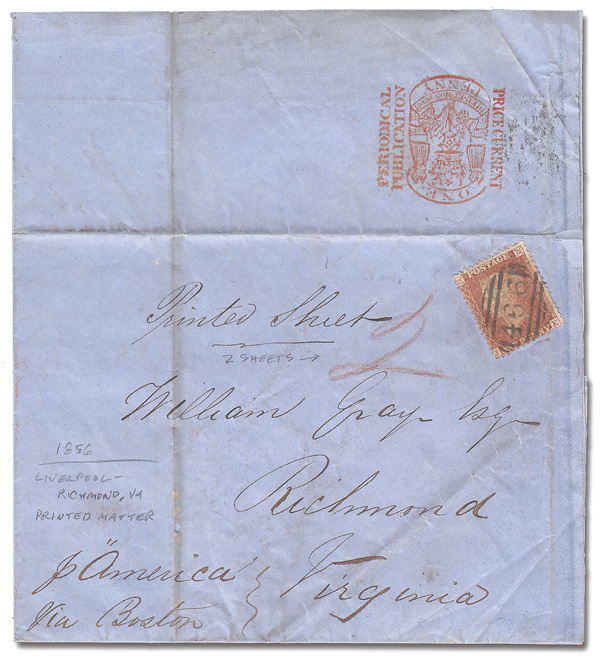 PERIODICAL
PUBLICATION
ONE PENNY
PRICE CURRENT
POSTAGE
466
Printed Sheet
2 SHEETS →
2
William Gray Esq
1856
LIVERPOOL –
RICHMOND, VA
PRINTED MATTER
Richmond
Virginia
p "America"
Via Boston